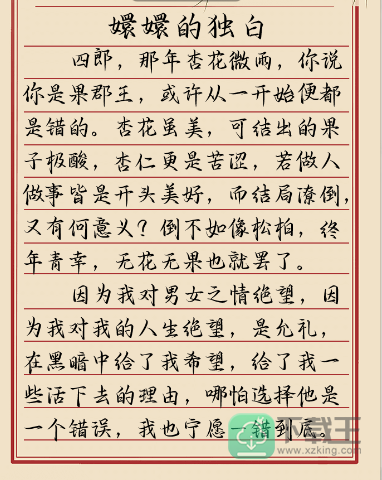 嬛嬛的独白
四郎，那年杏花微雨，你说
你是果郡王，或许从一开始便都
是错的。杏花虽美，可结出的果
子极酸，杏仁更是苦涩，若做人
做事皆是开头美好，而结局潦倒，
又有何意义？倒不如像松柏，终
年青幸，无花无果也就罢了。
因为我对男女之情绝望，因
为我对我的人生绝望，是允礼，
在黑暗中给了我希望，给了我一
些活下去的理由，哪怕选择他是
一个错误，我也宁愿一错到底。
下载王
www.xzking.com